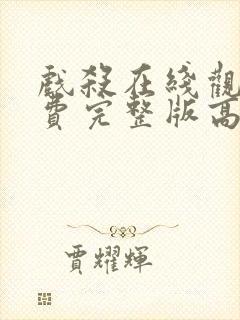 戲殺在綫觀
費完整版高
賈耀輝